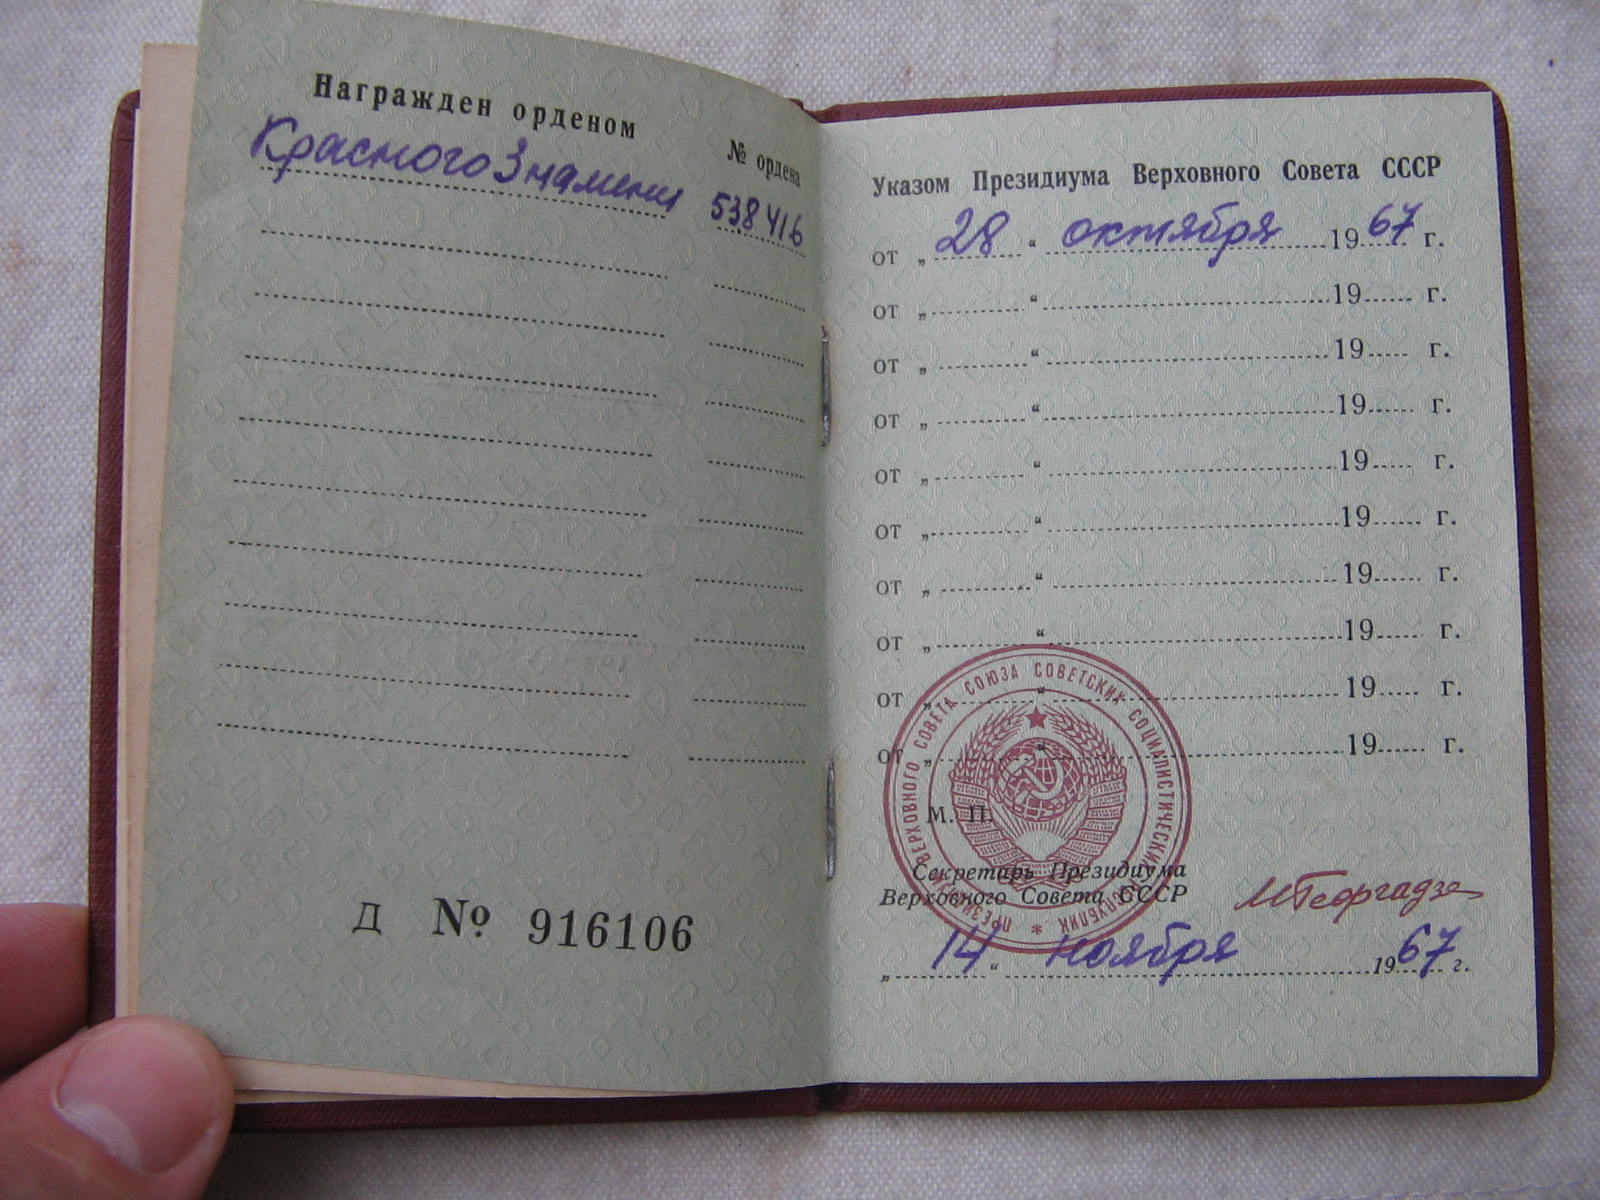 Награжден орденом
№ ордена
Красного Знамени 538416
Д № 916106
Указом Президиума Верховного Совета СССР
от „ 28 “ октября 1967 г.
от „ “ 19 г.
от „ “ 19 г.
от „ “ 19 г.
от „ “ 19 г.
от „ “ 19 г.
от „ “ 19 г.
от „ “ 19 г.
от „ “ 19 г.
от „ “ 19 г.
М. П.
ПРЕЗИДИУМ ВЕРХОВНОГО СОВЕТА СОЮЗА СОВЕТСКИХ СОЦИАЛИСТИЧЕСКИХ РЕСПУБЛИК *
Секретарь Президиума
Верховного Совета СССР
МГеоргадзе
„ 14 “ ноября 1967 г.